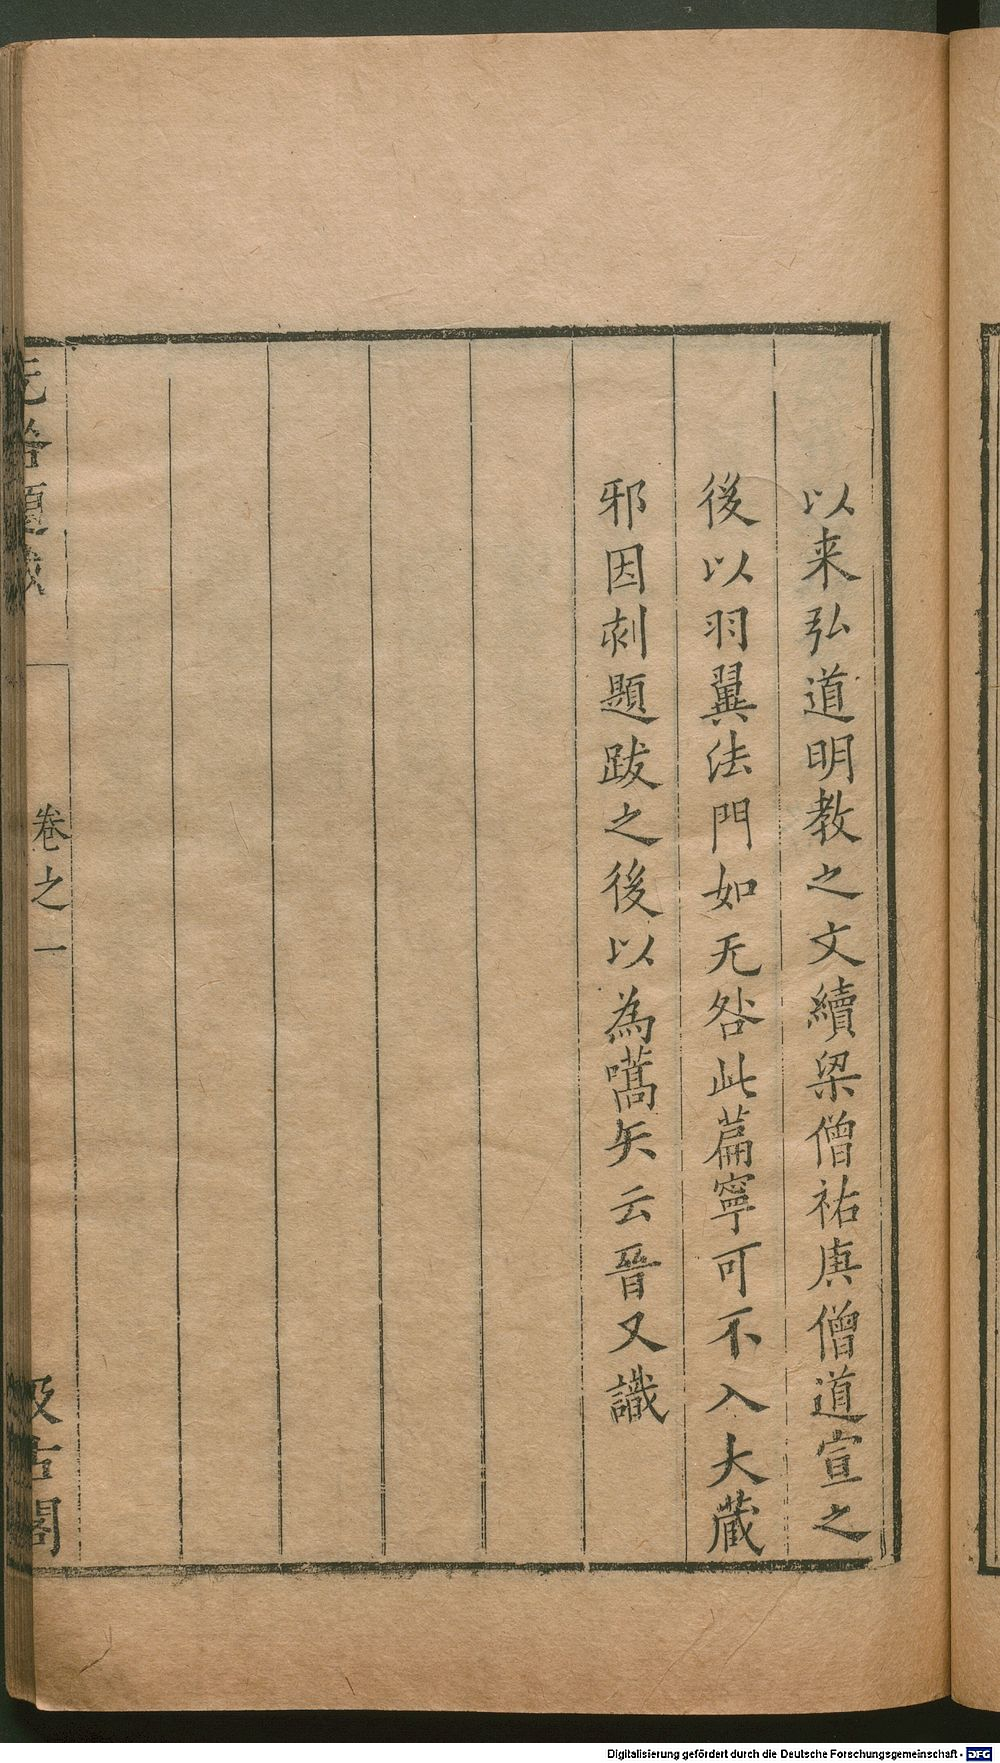 以来弘道明教之文續梁僧祐唐僧道宣之
後以羽翼法門如无咎此篇寧可不入大蔵
邪因刺題跋之後以為嚆矢云晋又識
无咎題跋
卷之一
汲古閣
Digitalisierung gefördert durch die Deutsche Forschungsgemeinschaft - DFG